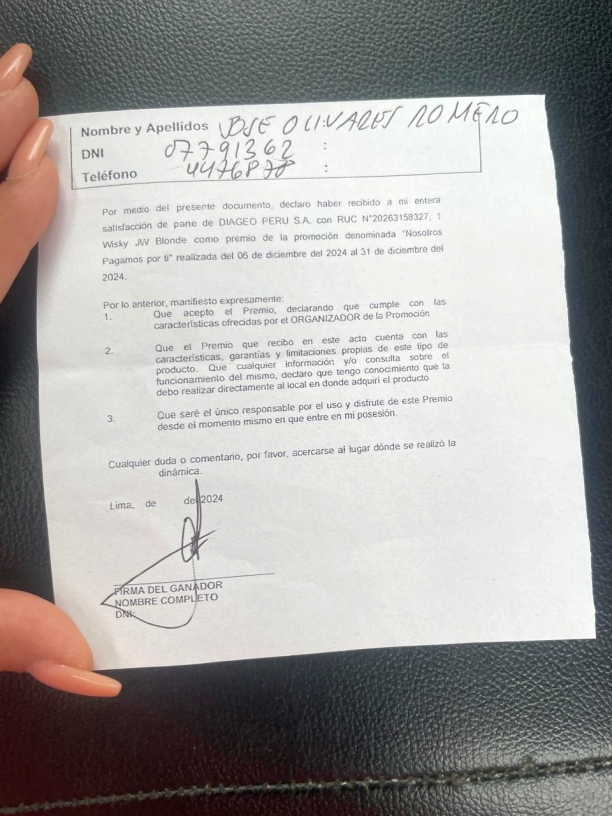 Nombre y Apellidos JOSE OLIVARES ROMERO
DNI 07791362 :
Teléfono 4476878 :
Por medio del presente documento, declaro haber recibido a mi entera
satisfacción de parte de DIAGEO PERU S.A. con RUC N°20263158327, 1
Wisky JW Blonde como premio de la promoción denominada "Nosotros
Pagamos por ti" realizada del 06 de diciembre del 2024 al 31 de diciembre del
2024.
Por lo anterior, manifiesto expresamente:
1. Que acepto el Premio, declarando que cumple con las
características ofrecidas por el ORGANIZADOR de la Promoción
2. Que el Premio que recibo en este acto cuenta con las
características, garantías y limitaciones propias de este tipo de
producto. Que cualquier información y/o consulta sobre el
funcionamiento del mismo, declaro que tengo conocimiento que la
debo realizar directamente al local en donde adquirí el producto
3. Que seré el único responsable por el uso y disfrute de este Premio
desde el momento mismo en que entre en mi posesión.
Cualquier duda o comentario, por favor, acercarse al lugar dónde se realizó la
dinámica.
Lima, de del 2024
FIRMA DEL GANADOR
NOMBRE COMPLETO
DNI: